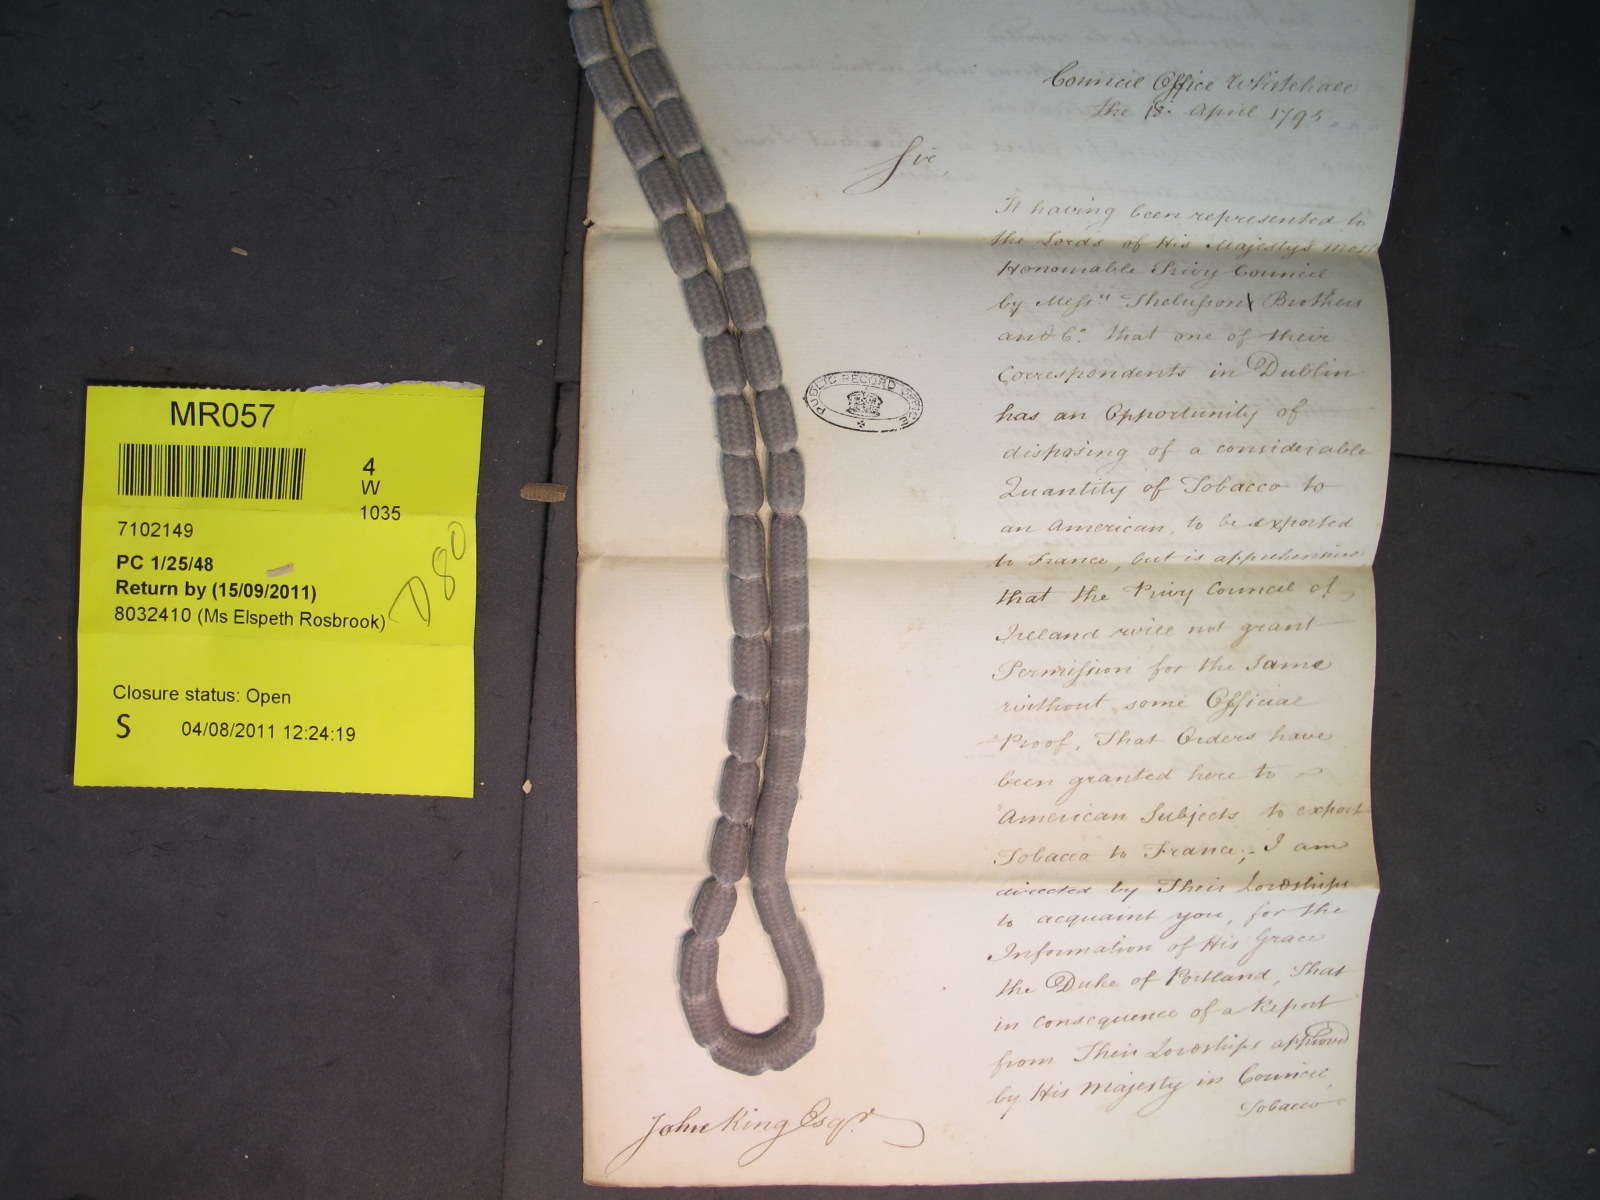 MR057
4
W
1035
7102149
PC 1/25/48
Return by (15/09/2011)
8032410 (Ms Elspeth Rosbrook)
D80
Closure status: Open
S 04/08/2011 12:24:19
Council Office Whitehall
the 18. April 1795
Sir,
It having been represented to
the Lords of His Majesty's most
Honourable Privy Council
by Messrs Thelusson Brothers
and Co. that one of their
Correspondents in Dublin
has an Opportunity of
disposing of a considerable
Quantity of Tobacco to
an American, to be exported
to France, but is apprehensive
that the Privy Council of
Ireland will not grant
Permission for the same
without some Official
Proof, That Orders have
been granted here to
American Subjects to export
Tobacco to France;- I am
directed by Their Lordships
to acquaint you, for the
Information of His Grace
the Duke of Portland, That
in consequence of a Report
from Their Lordships approved
by His Majesty in Council,
Tobacco
John King Esqr.
PUBLIC RECORD OFFICE